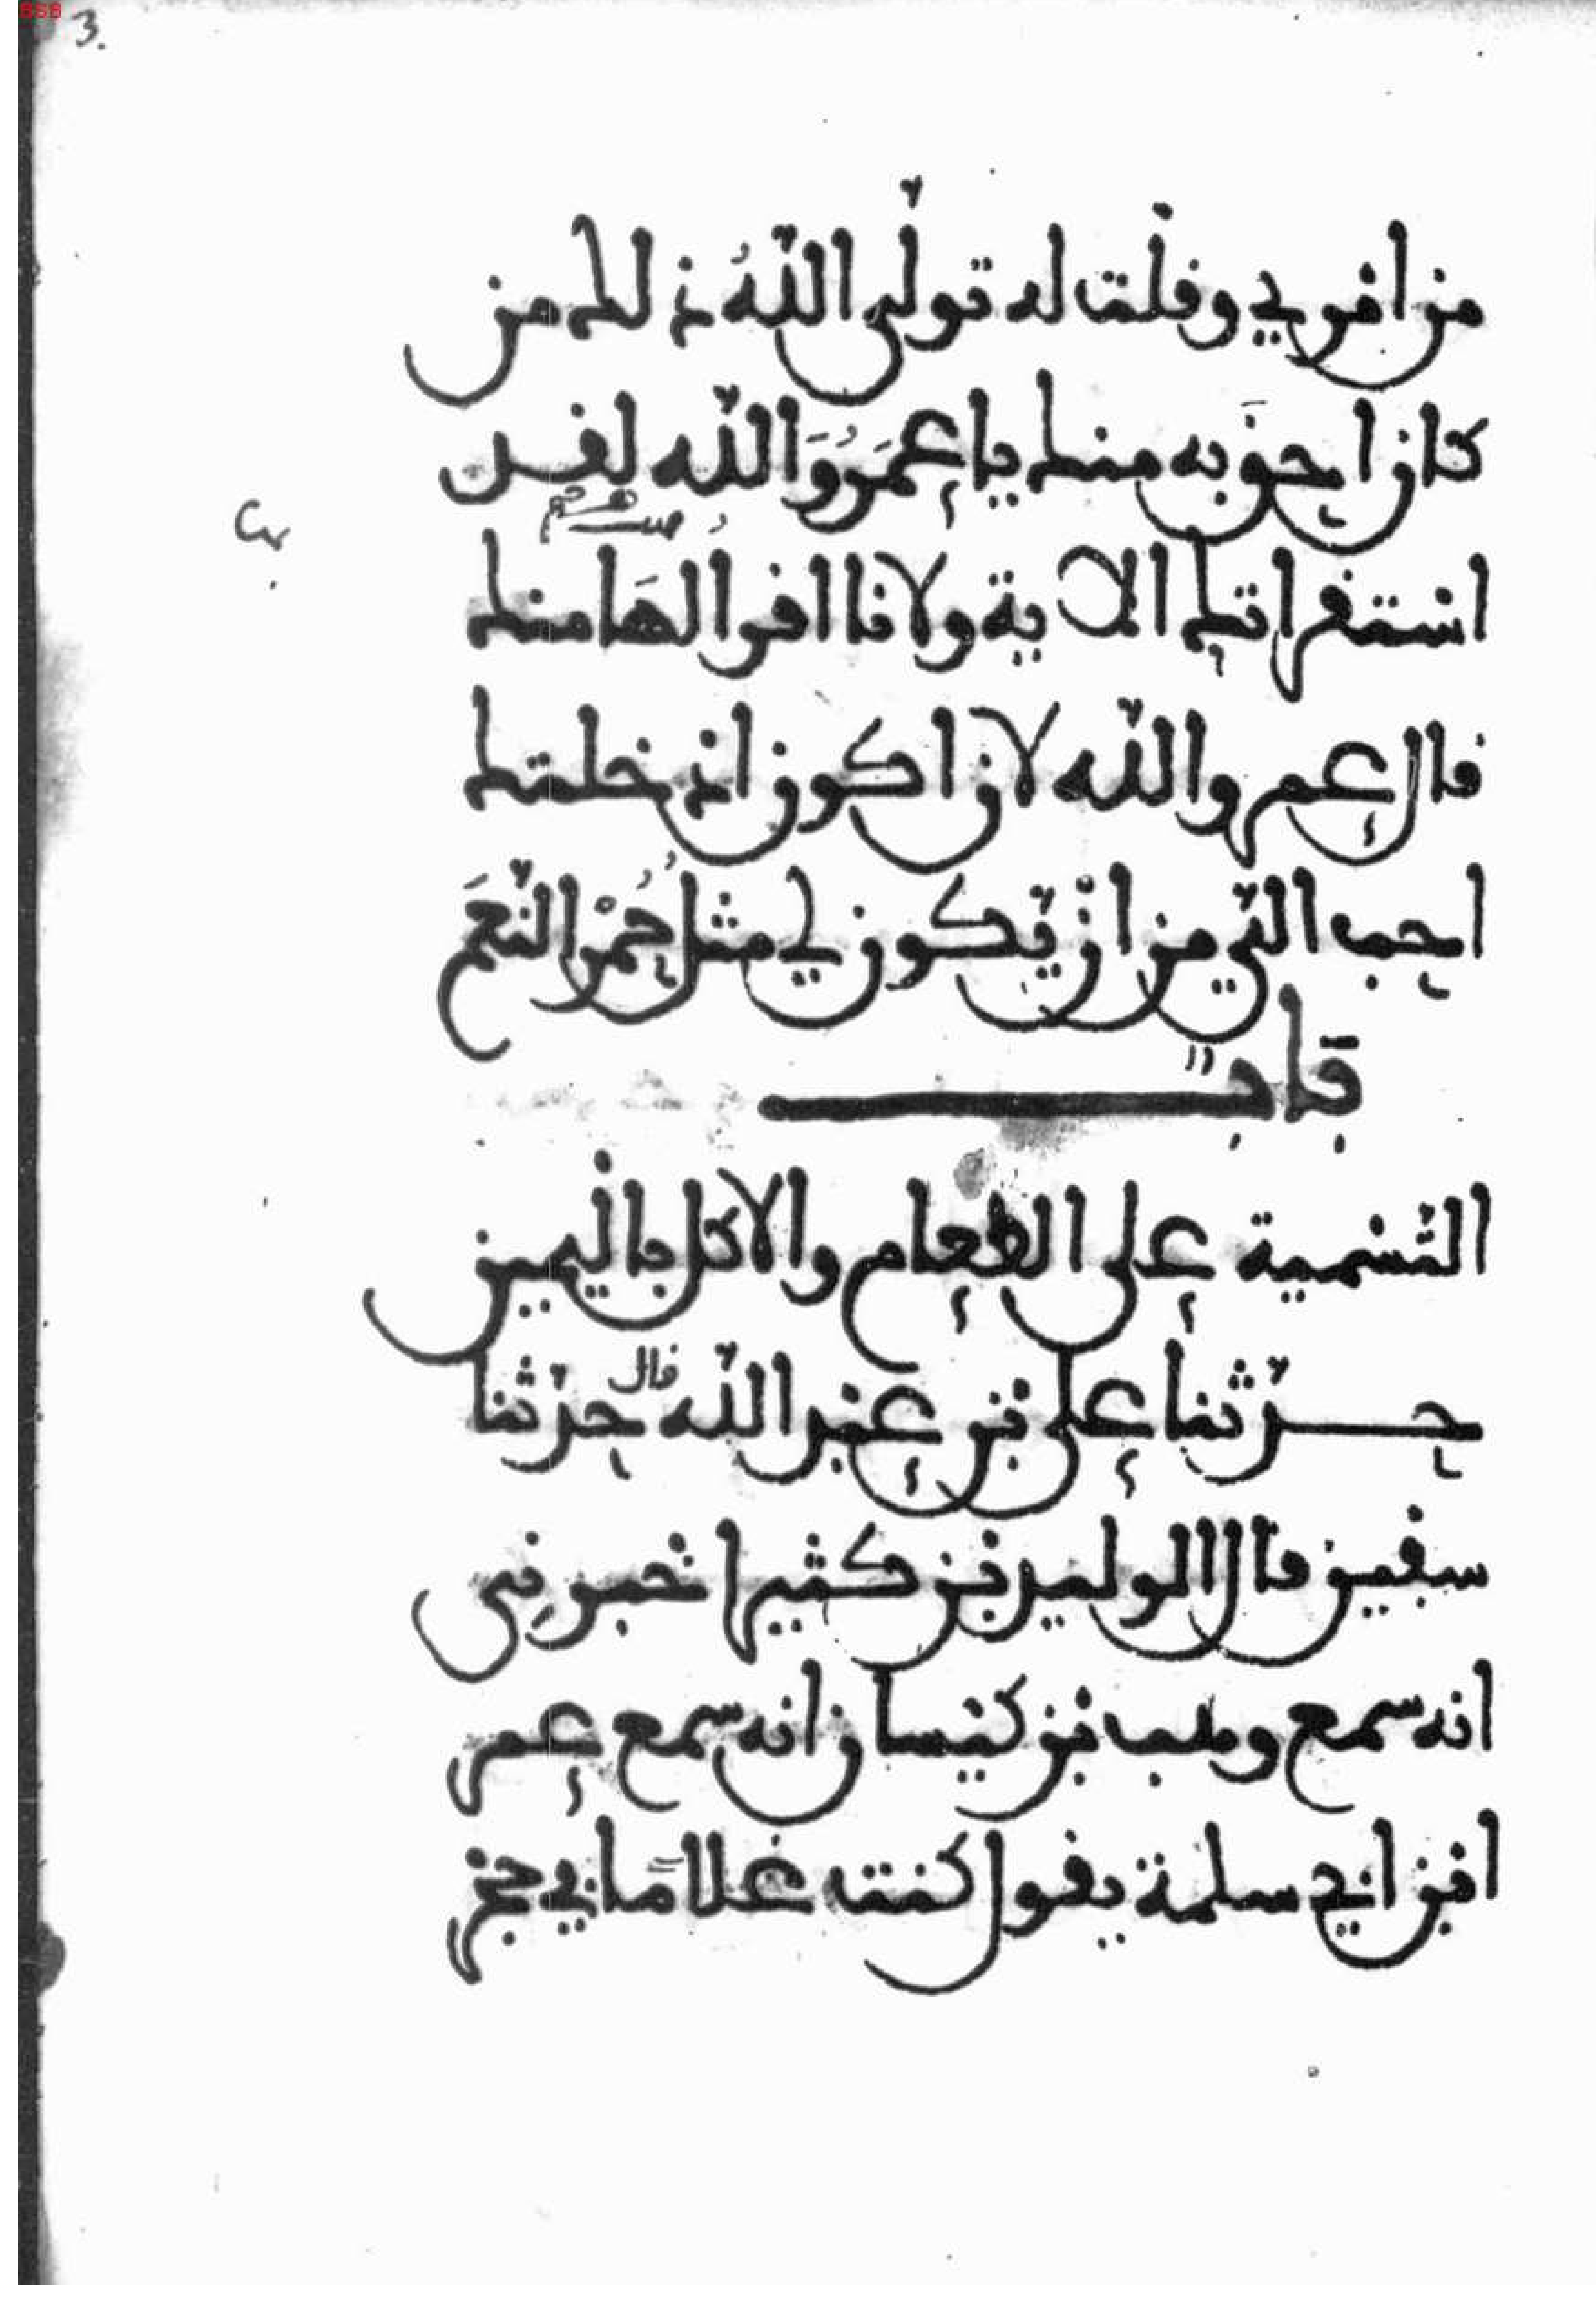 3.
من امري وقلت له تولى اللّٰهُ ذلك من
كان احق به منك يا عمَرُ وَاللّٰه لقد
استقراتك الاية ولانا اقرا لهَا منك
قال عمر واللّٰه لان اكون ادخلتك
احب الىّ من انْ يّكون لي مثل حُمْرِ النّعَم
باب
التّسْمية على الطعام والاكل باليمين
حدّثنا علي بْن عبْد اللّٰه قال حدّثنا
سفين قال الوليد بْن كثير اخبرنِي
انه سمع وهب بْن كيْسان انه سمع عمر
ابْن ابي سلمة يقول كنت غلامًا في حجْر